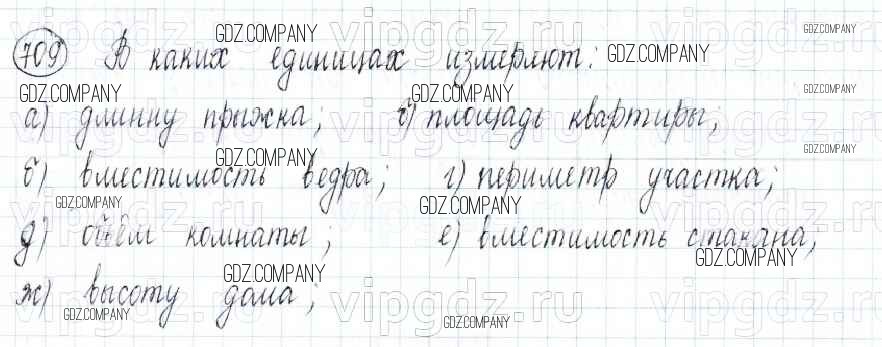 709 В каких единицах измеряют:
а) длинну прыжка; б) площадь квартиры;
б) вместимость ведра; г) периметр участка;
д) объём комнаты; е) вместимость стакана;
ж) высоту дома;
GDZ.COMPANY
vipgdz.ru